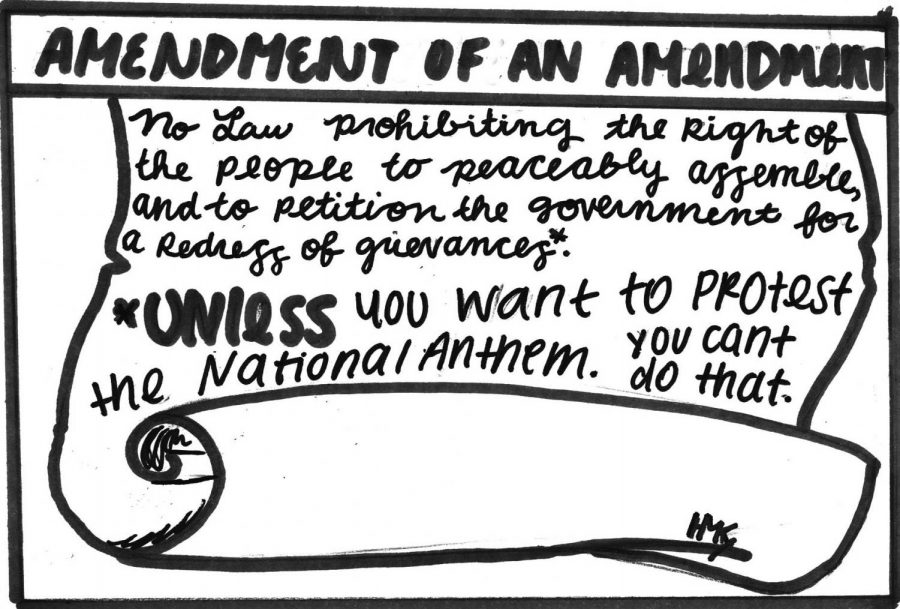 AMENDMENT OF AN AMENDMENT
No Law prohibiting the Right of
the people to peaceably assemble,
and to petition the government for
a Redress of grievances*.
*UNLESS you want to PROtest
the National Anthem. you cant
do that.
HMG